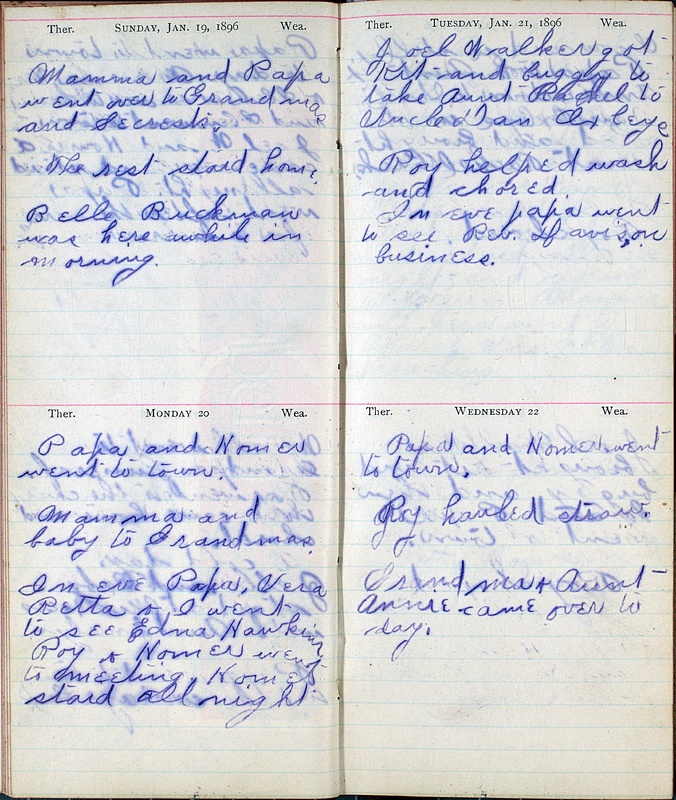 Ther. SUNDAY, JAN. 19, 1896 Wea.
Mamma and Papa
went over to Grandmas
and Secrests.
The rest staid home.
Belle Buckman
was here awhile in
morning.
Ther. MONDAY 20 Wea.
Papa and Homer
went to town.
Mamma and
baby to Grandmas
In eve Papa, Vera
Retta & I went
to see Edna Hawkins
Roy & Homer went
to meeting. Homer
staid all night
Ther. TUESDAY, JAN. 21, 1896 Wea.
Joel Walker got
Kit and buggy to
take Aunt Rachel to
Uncle Ian Axleys
Roy helped wash
and chored.
In eve papa went
to see Rev. Davison
business.
Ther. WEDNESDAY 22 Wea.
Papa and Homer went
to town.
Roy hauled straw.
Grandma & Aunt
Annie came over to
day.